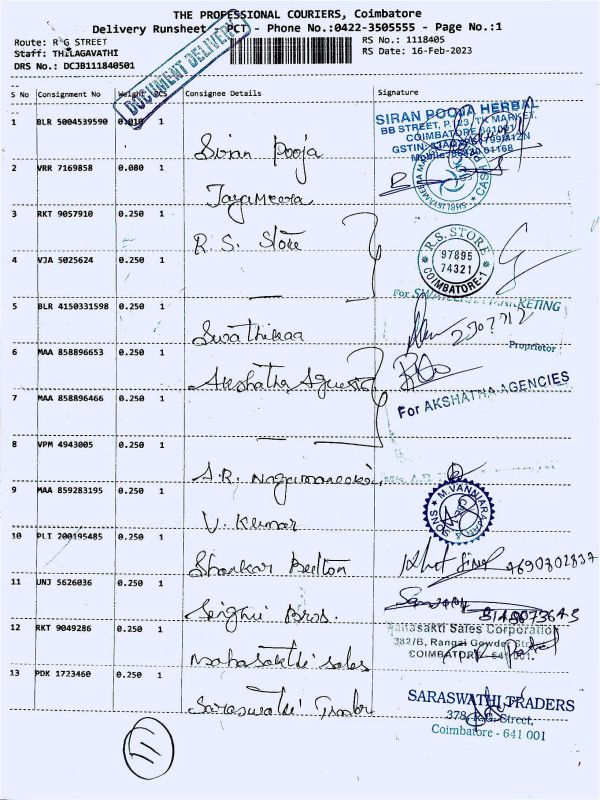 THE PROFESSIONAL COURIERS, Coimbatore
Delivery Runsheet - PCT - Phone No.:0422-3505555 - Page No.:1
Route: R G STREET
RS No.: 1118405
Staff: THILAGAVATHI
RS Date: 16-Feb-2023
DRS No.: DCJB111840501
DOCUMENT DELIVERY
S No Consignment No Weight PCS Consignee Details Signature
1 BLR 5004539590 0.010 1 Siran Pooja
SIRAN POOJA HERBAL
BB STREET, P.123, TK MARKET,
COIMBATORE 641001
2 VRR 7169858 0.080 1 Jayameera
3 RKT 9057910 0.250 1 R. S. Store
R.S. STORE
97895
74321
COIMBATORE-1
4 VJA 5025624 0.250 1 —
5 BLR 4150331598 0.250 1 Swathikaa
For MARKETING
Proprietor
6 MAA 858896653 0.250 1 Akshatha Agencies
For AKSHATHA AGENCIES
7 MAA 858896466 0.250 1 —
8 VPM 4943005 0.250 1
9 MAA 859283195 0.250 1 V. Kumar
& SONS
10 PLI 200195485 0.250 1 Shankar Button
7690302837
11 UNJ 5626036 0.250 1 Singhvi Bros.
12 RKT 9049286 0.250 1 Mahasakthi Sales
Mahasakti Sales Corporation
382/B, Rangai Gowder Street
COIMBATORE - 641 001.
13 PDK 1723460 0.250 1 Saraswathi Trader
SARASWATHI TRADERS
378, R.G. Street,
Coimbatore - 641 001
11